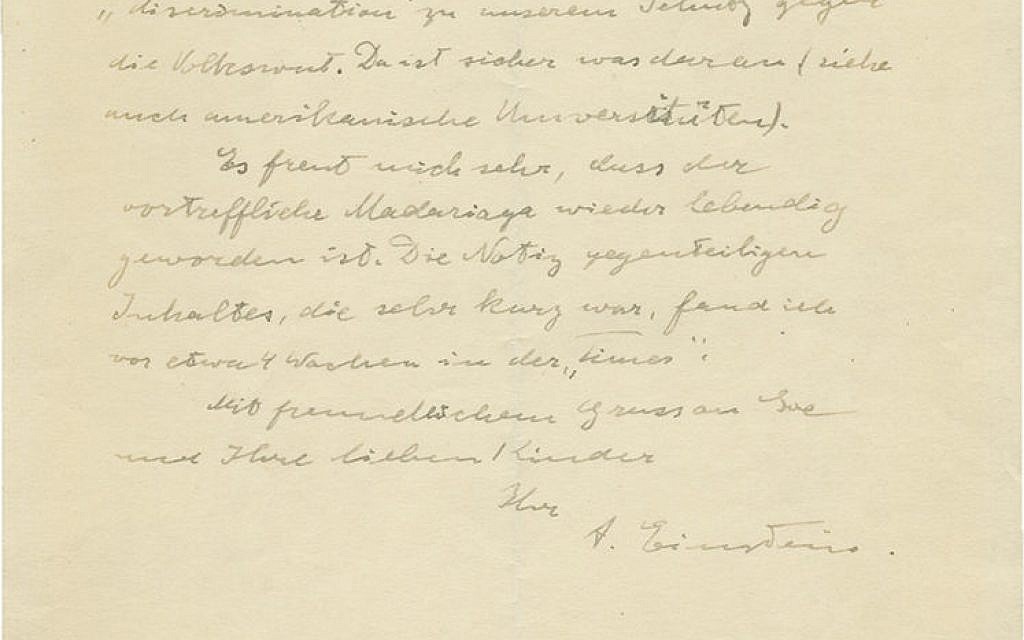 „discrimination" zu unserem Schutz gegen
die Volkswut. Da ist sicher was daran (siehe
auch amerikanische Universitäten).
Es freut mich sehr, dass der
vortreffliche Madariaga wieder lebendig
geworden ist. Die Notiz gegenteiligen
Inhaltes, die sehr kurz war, fand ich
vor etwa 4 Wochen in der „Times".
Mit freundlichem Gruss an Sie
und Ihre lieben Kinder
Ihr
A. Einstein.